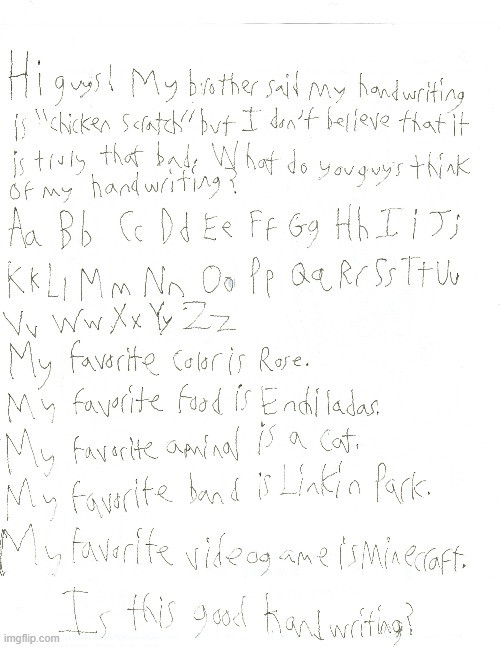 Hi guys! My brother said my handwriting
is "chicken scratch" but I don't believe that it
is truly that bad. What do you guys think
of my handwriting?
Aa Bb Cc Dd Ee Ff Gg Hh Ii Jj
Kk Ll Mm Nn Oo Pp Qq Rr Ss Tt Uu
Vv Ww Xx Yy Zz
My favorite color is Rose.
My favorite food is Enchiladas.
My favorite aminal is a cat.
My favorite band is Linkin Park.
My favorite videogame is Minecraft.
Is this good handwriting?
imgflip.com